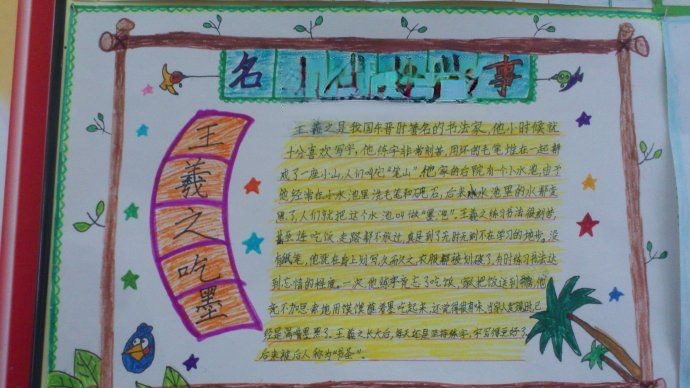 名事
王羲之吃墨
王羲之是我国东晋时著名的书法家，他小时候就
十分喜欢写字，他练字非常刻苦，用坏的毛笔堆在一起都
成了一座小山，人们叫它"笔山"，他家的后院有一个小水池，由于
他经常在小水池里洗毛笔和砚石，后来水池里的水都变
黑了，人们就把这个水池叫做"墨池"。王羲之练习书法很刻苦，
甚至连吃饭，走路都不放过，真是到了无时无刻不在学习的地步。没
有纸笔，他就在身上划写，久而久之，衣服都被划破了，有时练习书法达
到忘情的程度，一次，他练字竟忘了吃饭，家人把饭送到书房，他
竟不加思索地用馍馍蘸着墨吃起来，还觉得很有味，当家人发现时，已
经是满嘴墨黑了。王羲之长大后，每天还是坚持练字，字写得更好了，
后来被后人称为"书圣"。